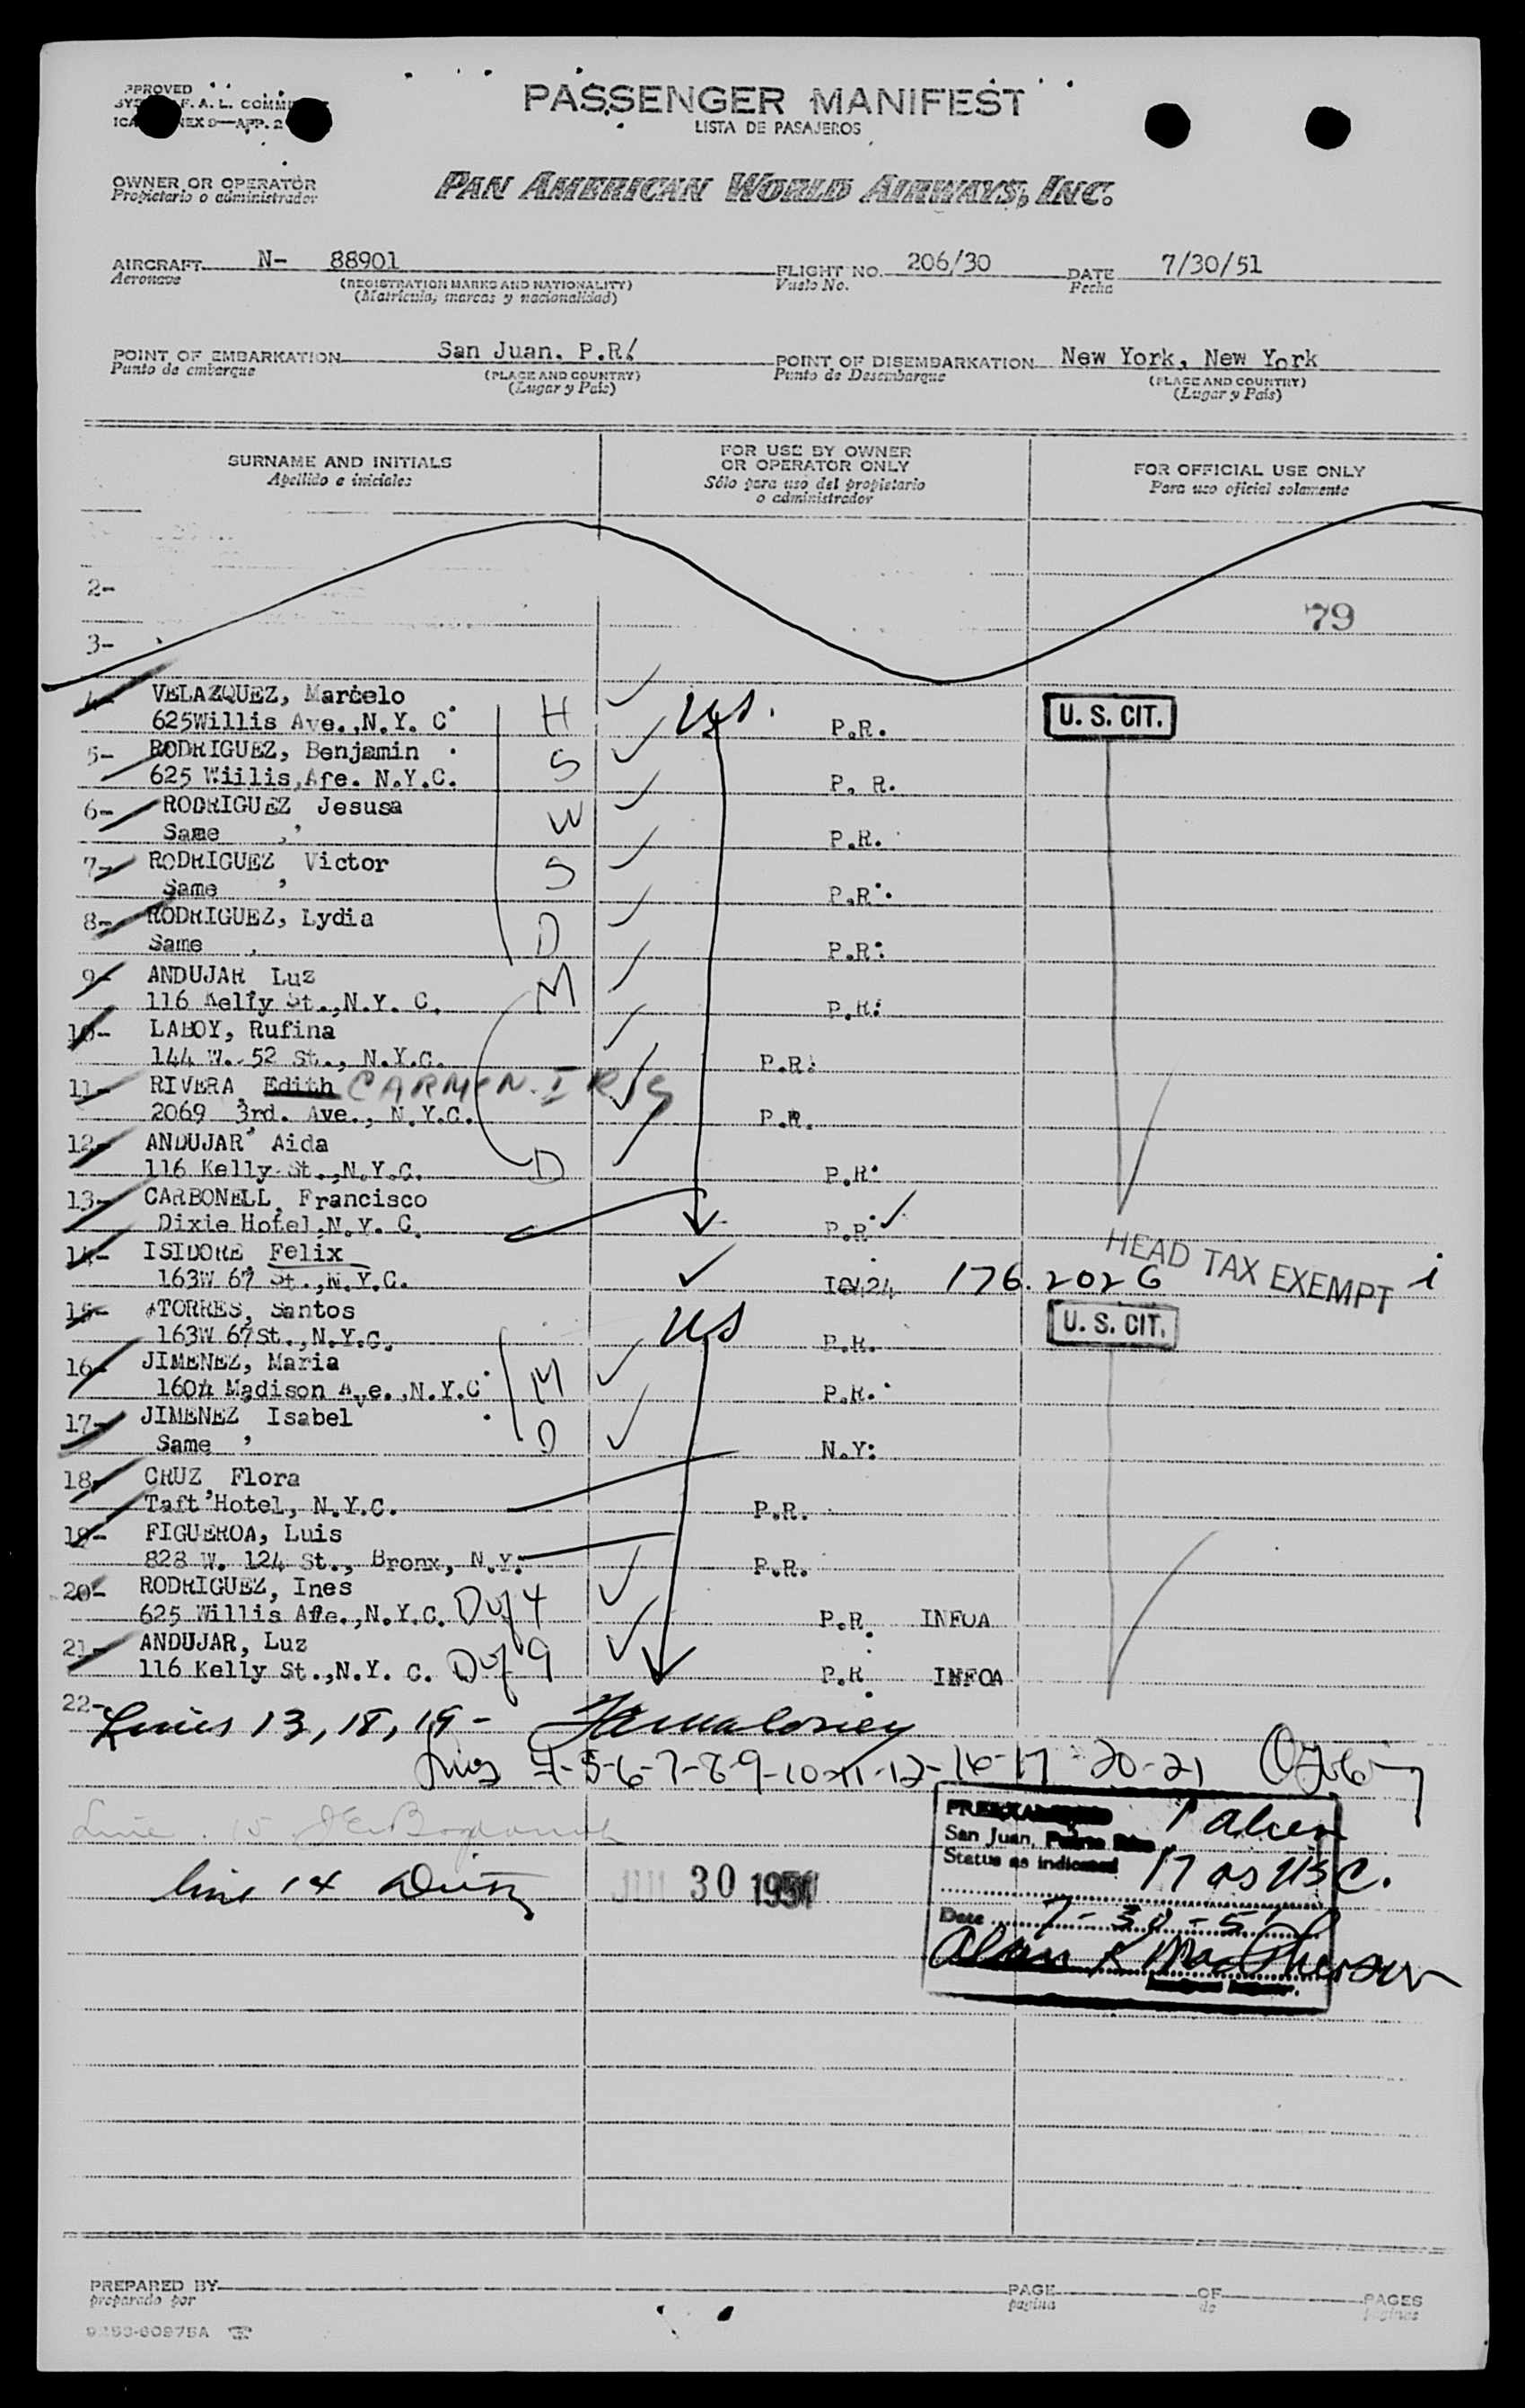 PASSENGER MANIFEST
LISTA DE PASAJEROS
OWNER OR OPERATOR
Propietario o administrador
PAN AMERICAN WORLD AIRWAYS, INC.
AIRCRAFT N- 88901 FLIGHT NO. 206/30 DATE 7/30/51
Aeronave (REGISTRATION MARKS AND NATIONALITY) Vuelo No. Fecha
(Matricula, marcas y nacionalidad)
POINT OF EMBARKATION San Juan. P.R. POINT OF DISEMBARKATION New York, New York
Punto de embarque (PLACE AND COUNTRY) Punto de Desembarque (PLACE AND COUNTRY)
(Lugar y País) (Lugar y País)
SURNAME AND INITIALS FOR USE BY OWNER OR OPERATOR ONLY FOR OFFICIAL USE ONLY
Apellido e iniciales Sólo para uso del propietario o administrador Para uso oficial solamente
2-
79
3-
4- VELAZQUEZ, Marcelo
625Willis Ave.,N.Y. C. H US. P.R. U. S. CIT.
5- RODRIGUEZ, Benjamin
625 Wiilis,Afe. N.Y.C. S P. R.
6- RODRIGUEZ, Jesusa
Same W P.R.
7- RODRIGUEZ, Victor
Same S P.R.
8- RODRIGUEZ, Lydia
Same D P.R.
9- ANDUJAR Luz
116 Kelly St.,N.Y. C. M P.R.
10- LABOY, Rufina
144 W. 52 St., N.Y.C. P.R.
11- RIVERA, Edith CARMEN IRIS
2069 3rd. Ave., N.Y.C. P.R.
12- ANDUJAR, Aida
116 Kelly St.,N.Y.C. D P.R.
13- CARBONELL, Francisco
Dixie Hotel,N.Y. C. P.R.
14- ISIDORE, Felix HEAD TAX EXEMPT
163W 67 St.,N.Y.C. 176.2026 i
15- TORRES, Santos
163W 67St.,N.Y.C. US P.R. U. S. CIT.
16- JIMENEZ, Maria
1604 Madison Ave.,N.Y.C. M P.R.
17- JIMENEZ, Isabel
Same D N.Y.
18- CRUZ, Flora
Taft Hotel, N.Y.C. P.R.
19- FIGUEROA, Luis
828 W. 124 St., Bronx, N.Y. P.R.
20- RODRIGUEZ, Ines
625 Willis Afe.,N.Y.C. D of 4 P.R. INFOA
21- ANDUJAR, Luz
116 Kelly St.,N.Y. C. D of 9 P.R. INFOA
22-
Lines 13, 18, 19-
Lines 4-5-6-7-8-9-10-11-12-16-17-20-21
1 alien
San Juan,
Status as indicated 17 as USC.
Line 15
line 14
30 1951
Date 7-30-51
PREPARED BY PAGE OF PAGES
preparado por pagina de páginas